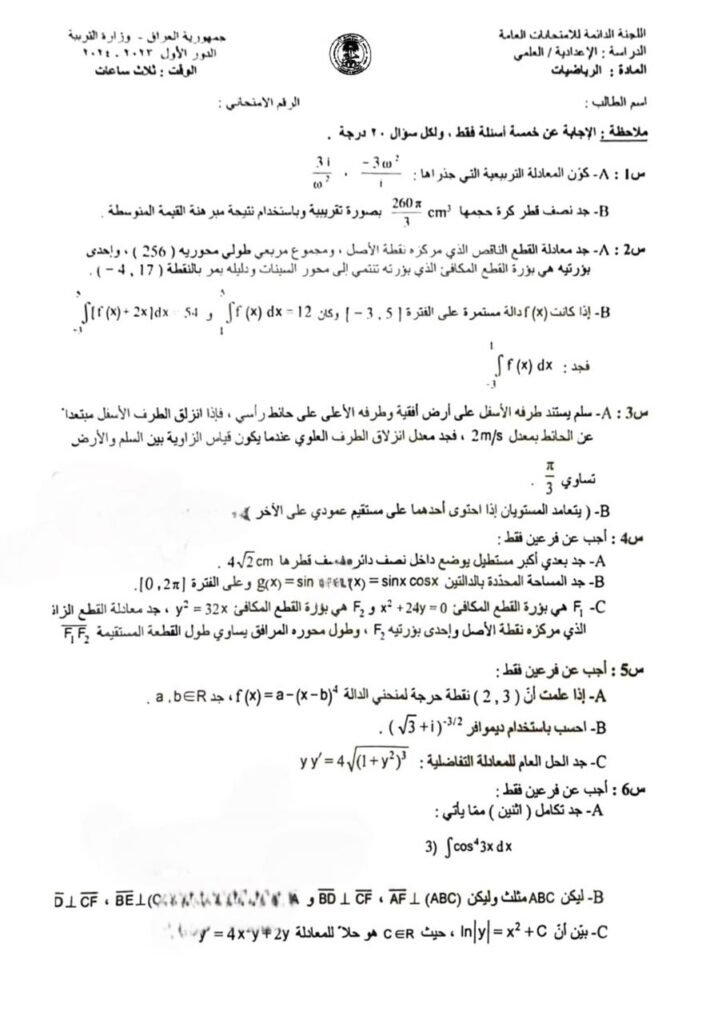 جمهورية العراق - وزارة التربية
الدور الأول ٢٠٢٣ - ٢٠٢٤
الوقت : ثلاث ساعات
اللجنة الدائمة للامتحانات العامة
الدراسة : الإعدادية / العلمي
المادة : الرياضيات
اسم الطالب : الرقم الامتحاني :
ملاحظة : الإجابة عن خمسة أسئلة فقط ، ولكل سؤال ٢٠ درجة .
س1 : A- كوّن المعادلة التربيعية التي جذراها : -3ω²/i ، 3i/ω²
B- جد نصف قطر كرة حجمها 260π/3 cm³ بصورة تقريبية وباستخدام نتيجة مبرهنة القيمة المتوسطة .
س2 : A- جد معادلة القطع الناقص الذي مركزه نقطة الأصل ، ومجموع مربعي طولي محوريه ( 256 ) ، وإحدى
بؤرتيه هي بؤرة القطع المكافئ الذي بؤرته تنتمي إلى محور السينات ودليله يمر بالنقطة ( 17 , 4 - ) .
B- إذا كانت f(x) دالة مستمرة على الفترة [ -3 , 5 ] وكان ∫₁⁵ f (x) dx = 12 و ∫₋₃⁵ [f (x) + 2x]dx = 54
فجد : ∫₋₃¹ f (x) dx
س3 : A- سلم يستند طرفه الأسفل على أرض أفقية وطرفه الأعلى على حائط رأسي ، فإذا انزلق الطرف الأسفل مبتعداً
عن الحائط بمعدل 2m/s ، فجد معدل انزلاق الطرف العلوي عندما يكون قياس الزاوية بين السلم والأرض
تساوي π/3 .
B- ( يتعامد المستويان إذا احتوى أحدهما على مستقيم عمودي على الآخر
س4 : أجب عن فرعين فقط :
A- جد بعدي أكبر مستطيل يوضع داخل نصف دائرة قطرها 4√2 cm .
B- جد المساحة المحددة بالدالتين g(x) = sin (x) = sinx cosx وعلى الفترة [0 , 2π].
C- F₁ هي بؤرة القطع المكافئ x² + 24y = 0 و F₂ هي بؤرة القطع المكافئ y² = 32x ، جد معادلة القطع الزائ
الذي مركزه نقطة الأصل وإحدى بؤرتيه F₂ ، وطول محوره المرافق يساوي طول القطعة المستقيمة F₁F₂
س5 : أجب عن فرعين فقط :
A- إذا علمت أنّ ( 2 , 3 ) نقطة حرجة لمنحني الدالة f (x) = a - (x - b)⁴ ، جد a , b∈R .
B- احسب باستخدام ديموافر (√3 + i)^-3/2 .
C- جد الحل العام للمعادلة التفاضلية : y y′ = 4√(1 + y²)³
س6 : أجب عن فرعين فقط :
A- جد تكامل ( اثنين ) ممّا يأتي :
3) ∫cos⁴3x dx
B- ليكن ABC مثلث وليكن AF ⊥ (ABC) ، BD ⊥ CF و BE⊥(C ، D⊥ CF
C- بيّن أنّ ln|y| = x² + C ، حيث C∈R هو حلاً للمعادلة = 4x²y + 2y